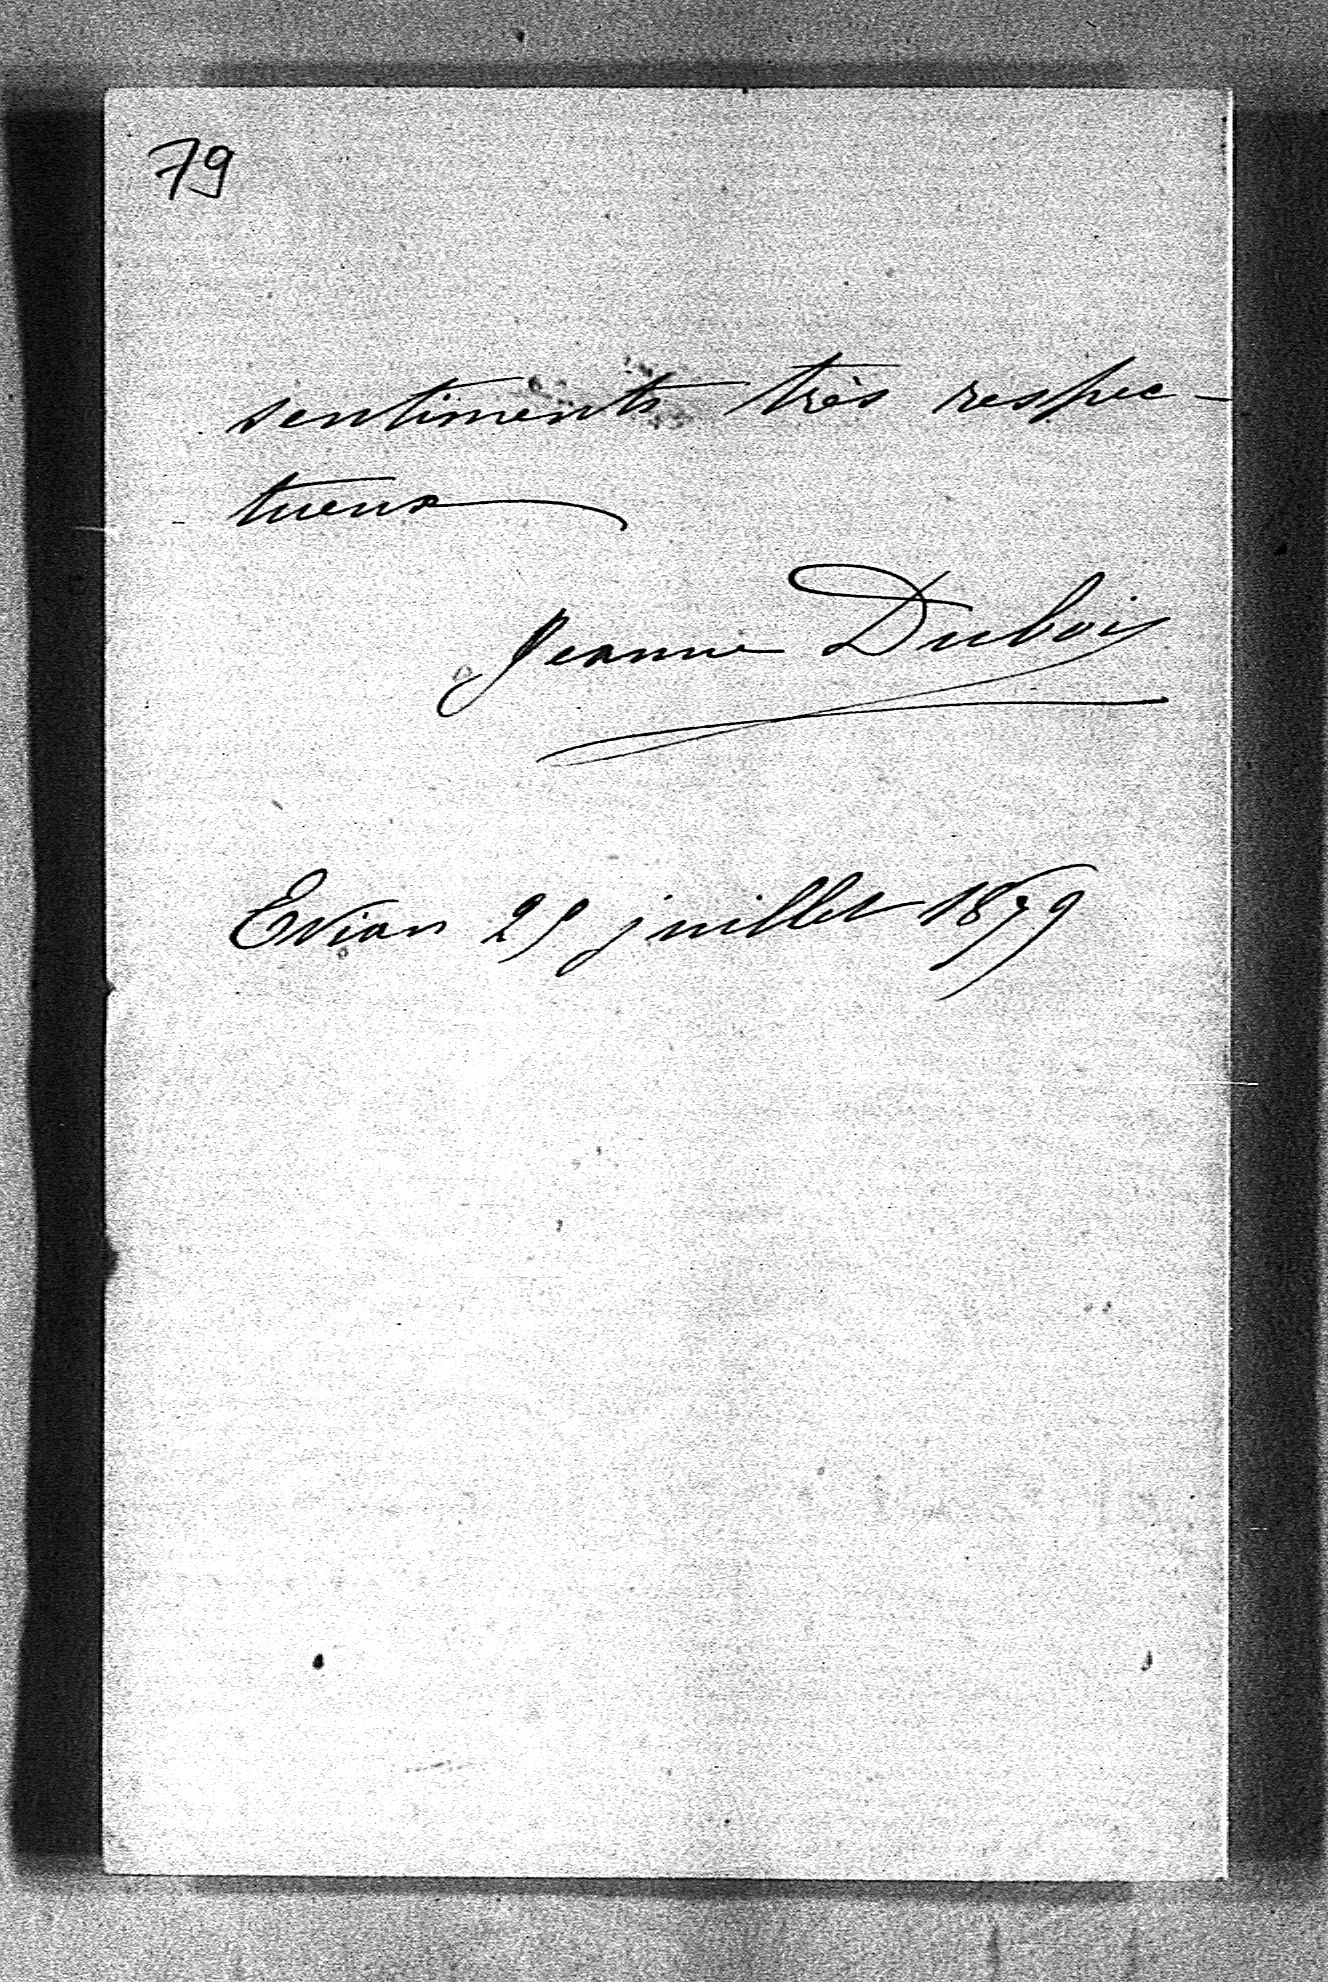 79
sentiments très respec-
tueux
Jeanne Dubois
Evian 29 juillet 1879